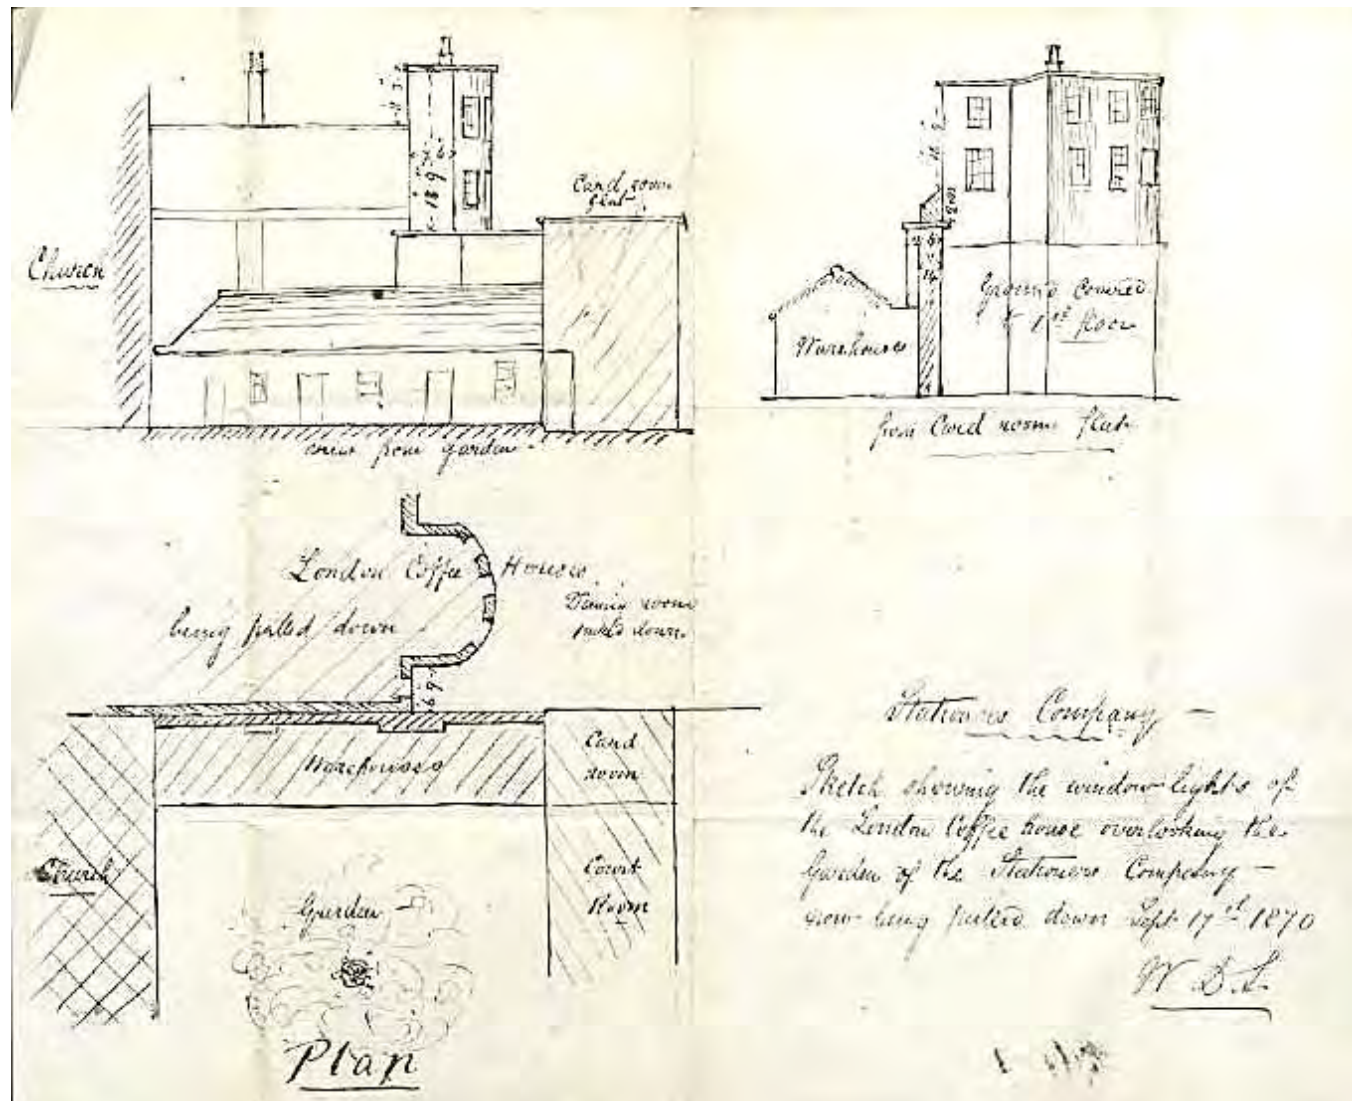 Card room
flat
Church
view from garden
Ground covered
to 1st floor
Warehouses
from Card room flat
London Coffee Houses
being pulled down
Dining room
pulled down
6.9
Warehouses
Card
room
Court
Room
Church
Garden
Plan
Stationers Company —
Sketch showing the window lights of
the London Coffee house overlooking the
Garden of the Stationers Company —
now being pulled down Sept 17th 1870
W D S